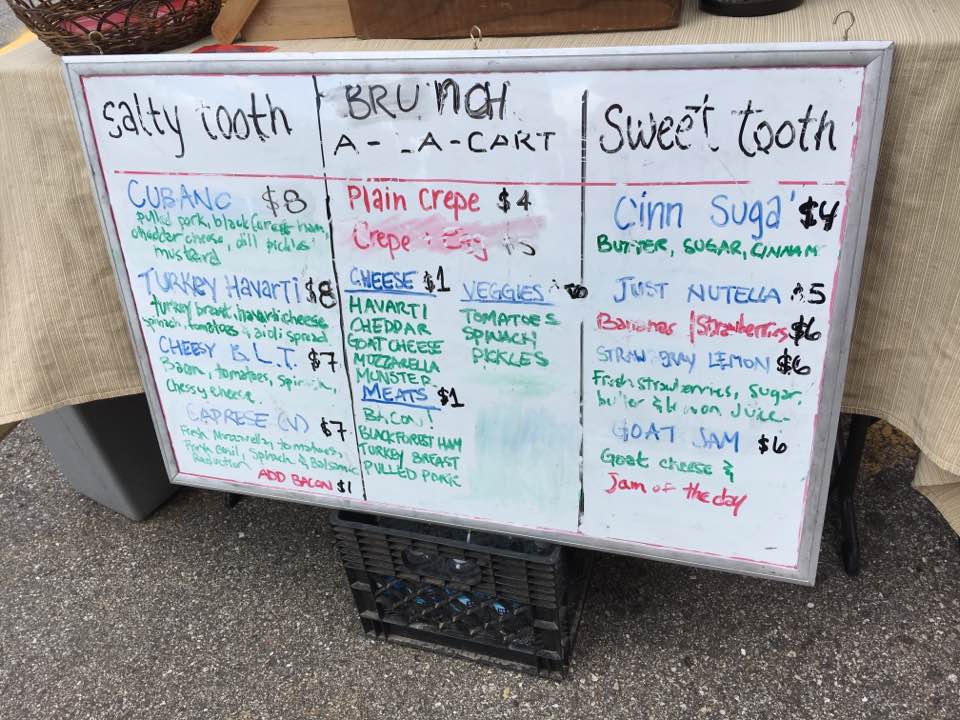 salty tooth
CUBANO $8
pulled pork, black forest ham,
cheddar cheese, dill pickles
mustard
TURKEY HAVARTI $8
turkey breast, havarti cheese
spinach, tomatoes & aioli spread
CHEESY B.L.T. $7
Bacon, tomatoes, spinach,
Chessy cheese
CAPRESE (V) $7
Fresh Mozzarella, tomatoes,
Fresh basil, Spinach & Balsamic
Reduction
ADD BACON $1
BRUNCH
A-LA-CART
Plain Crepe $4
Crepe & Egg $5
CHEESE $1
HAVARTI
CHEDDAR
GOAT CHEESE
MOZZARELLA
MUNSTER
MEATS $1
BACON!
BLACK FOREST HAM
TURKEY BREAST
PULLED PORK
VEGGIES
TOMATOES
SPINACH
PICKLES
Sweet tooth
Cinn Suga' $4
BUTTER, SUGAR, CINNAM
JUST NUTELLA $5
Bananas / Strawberries $6
STRAWBERRY LEMON $6
Fresh strawberries, Sugar,
butter & lemon juice
GOAT JAM $6
Goat cheese &
Jam of the day